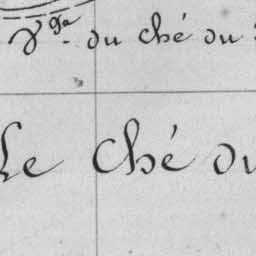 Vge. du ché du
Le Ché du